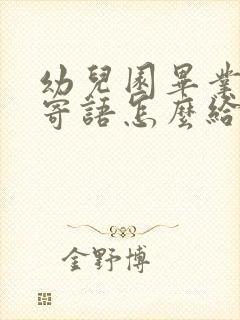 幼兒園畢業
寄語怎麼給
金野博